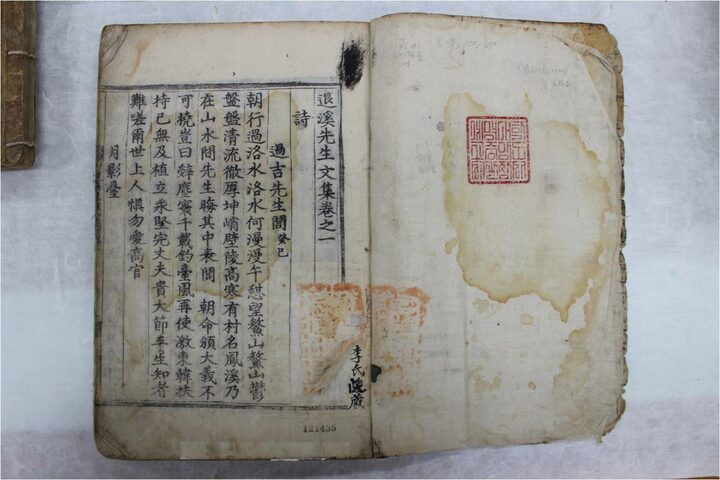 退溪先生文集卷之一
詩
過吉先生閭癸巳
朝行過洛水洛水何漫漫午憩望鰲山鰲山鬱
盤盤清流徹厚坤峭壁陵高寒有村名鳳溪乃
在山水間先生晦其中表閭 朝命頒大義不
可撓豈曰辭塵寰千載釣臺風再使激東韓扶
持已無及植立永堅完丈夫貴大節平生知者
難嗟爾世上人愼勿愛高官
月影臺
李氏 藏
121435